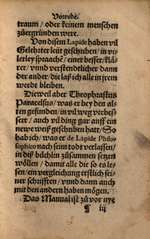 Vorrede.
traum / oder keinem menschen
zuergründen were.
Von disem Lapide haben vil
Gelehrter leüt geschriben / in vi-
lerley spraache / einer besser klä-
rer / vnnd verstendtlicher dann
der ander / die laß ich alle in jrem
werde bleiben.
Dieweil aber Theophrastus
Paracelsus / was er bey den al-
ten gefunden / in vil weg verbes-
sert / auch vil ding gar auff ein
new weiß geschriben hat / So
hab ich / was er de Lapide Philo-
sophico nach seim todt verlassen /
in diß büchlin zůsammen setzen
wöllen / damit alle die so es lesen /
ein vergleichung erstlich sei-
ner schrifften / vnnd dann auch
mit den andern haben mögen.
Das Manual ist zů vor nye
iij